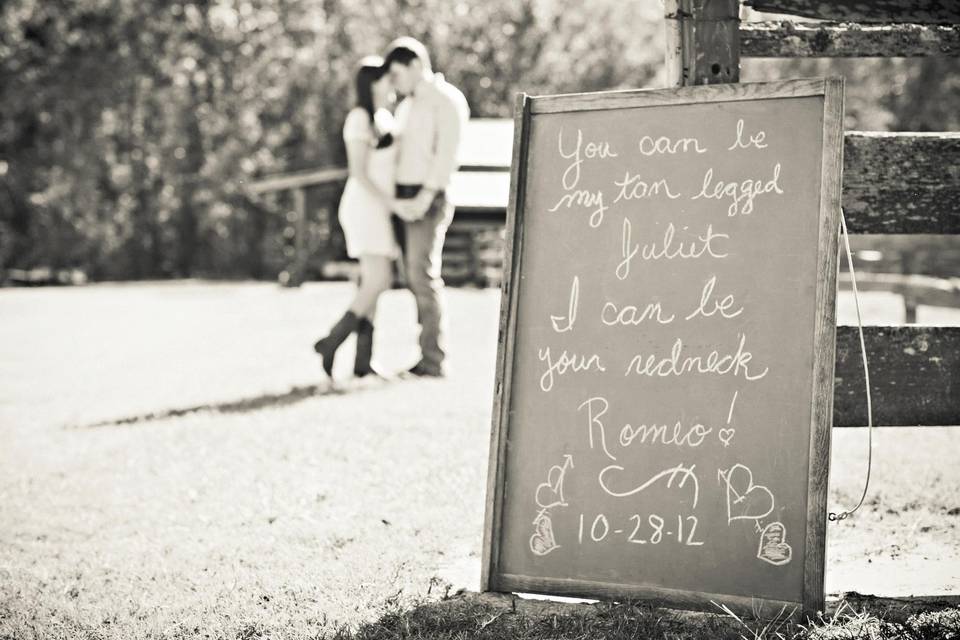 You can be
my tan legged
Juliet
I can be
your redneck
Romeo!
10-28-12